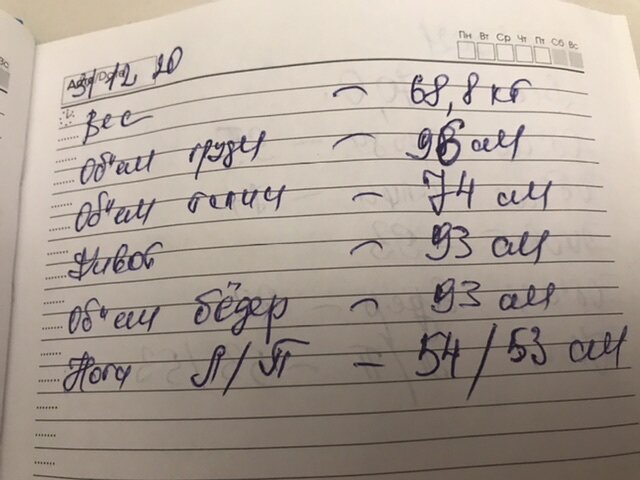 Пн Вт Ср Чт Пт Сб Вс
Дата/Date 31 12 20
Вес — 68,8 кг
Объём груди — 96 см
Объём талии — 74 см
Живот — 93 см
Объём бёдер — 93 см
Нога Л/П — 54/53 см